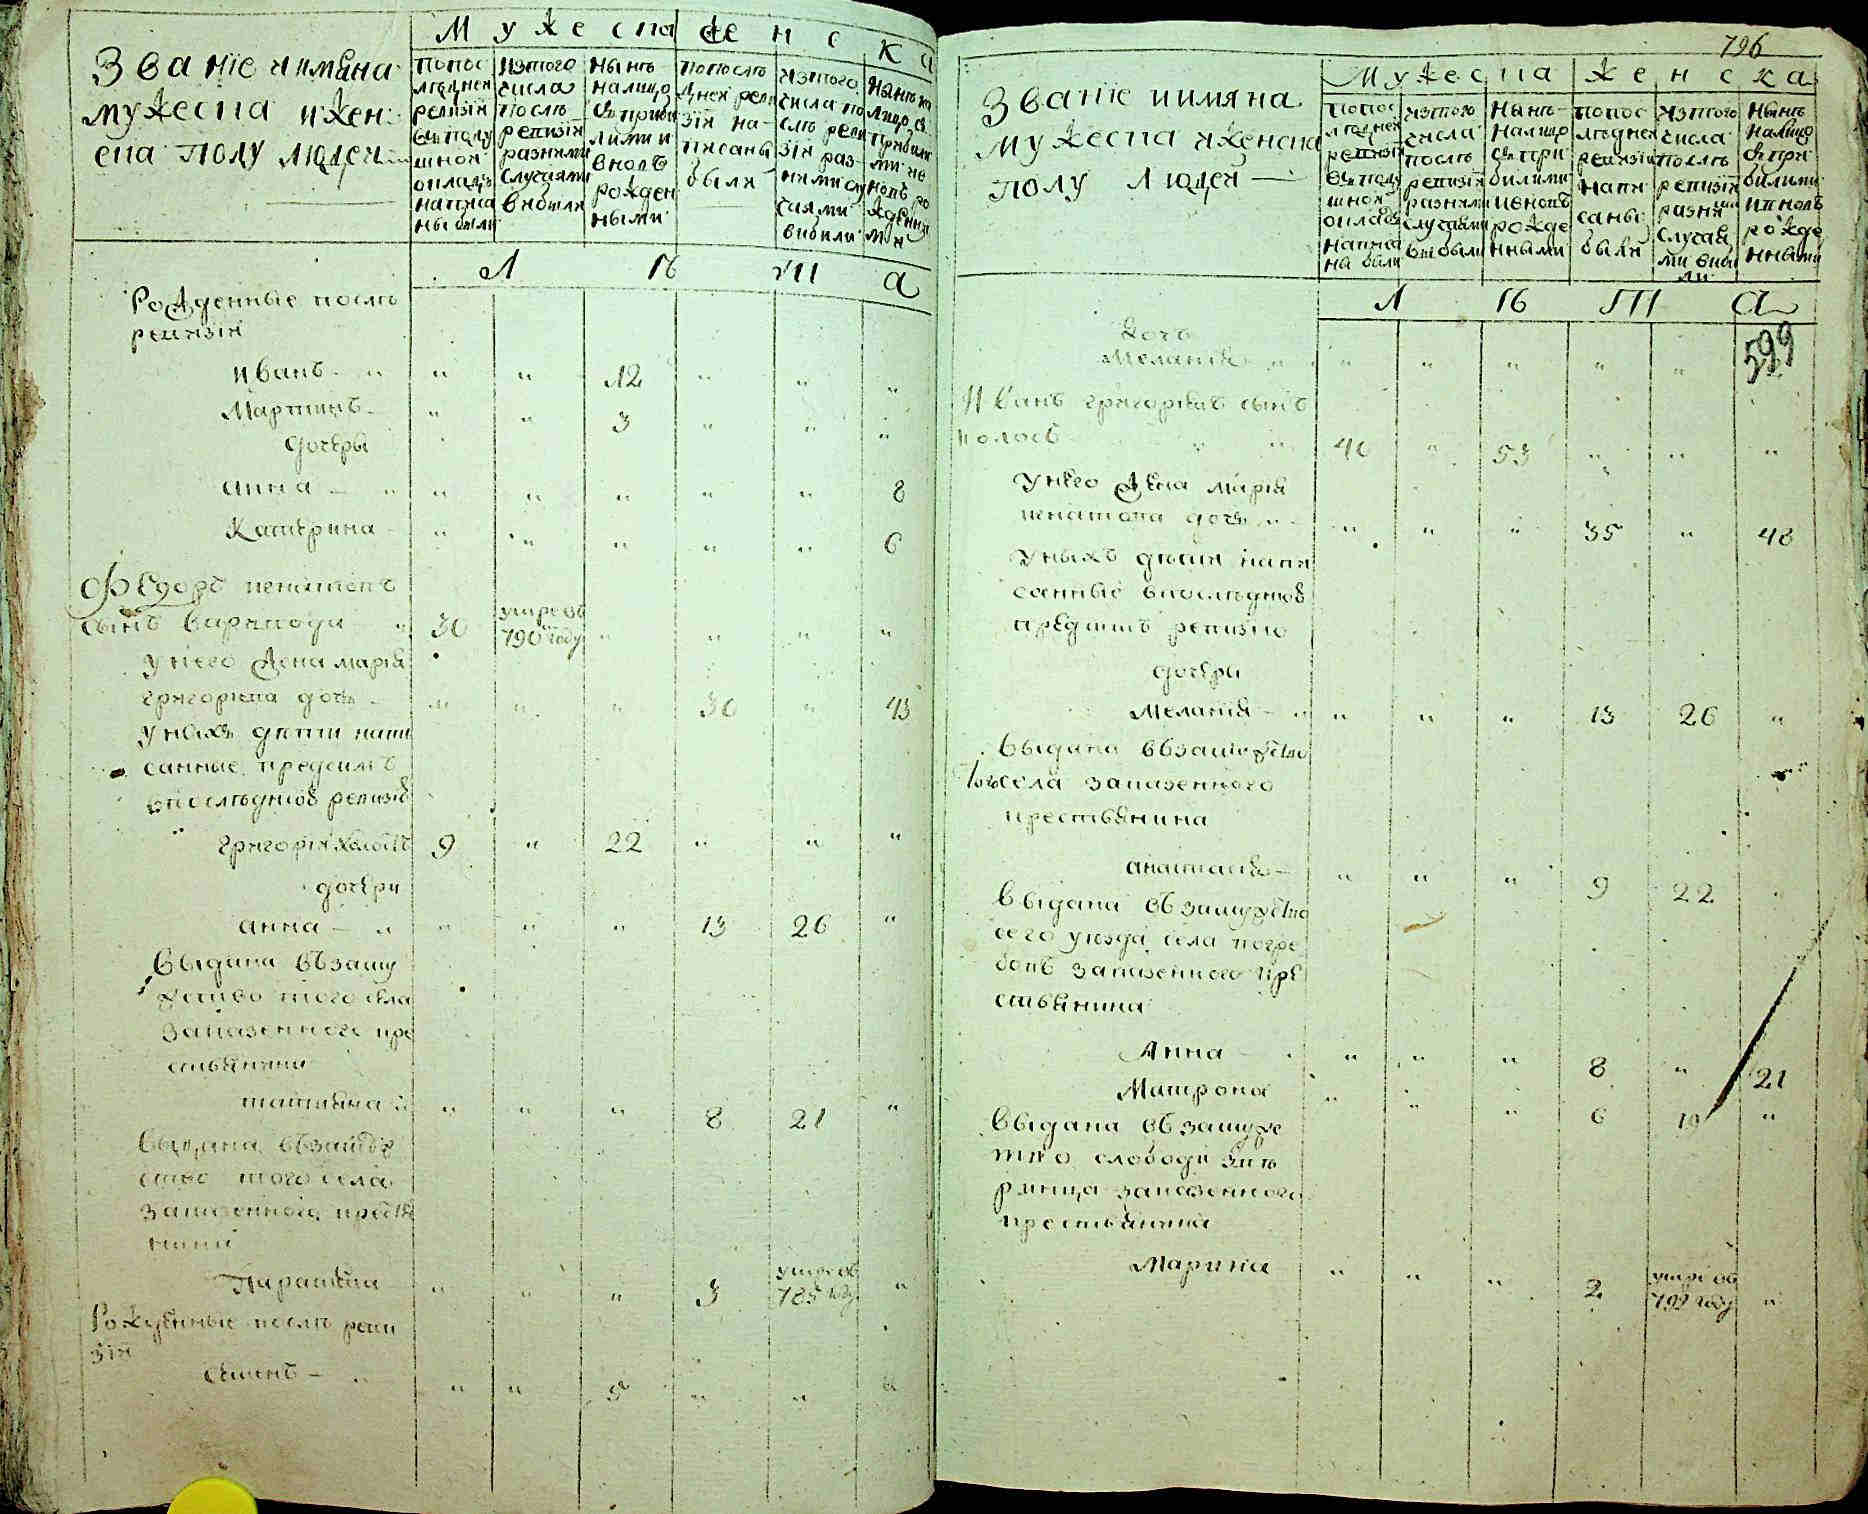 Званіе и имяна
мужеска и жен:
ска полу людей
Мужеска
женска
По последней ревизіи въ подушной окладъ написаны были
Изъ того числа после ревизіи разными случаями выбыли
Ныне налицо съ прибылыми и вновь рожденными
По последней ревизіи написаны были
Изъ того числа по сле ревизіи разными случаями выбыли
Ныне на лицо съ прибылыми и вновь рожденными
Лѣта
Рожденные послѣ
ревизіи
Иванъ " " 12 " " "
Мартинъ " " 3 " " "
дочери
анна " " " " " 8
Катерина " " " " " 6
Федоръ игнатовъ
сынъ
30 умре въ 790 году " " " "
у него жена марія
григорьева дочь " " " 30 " 43
у нихъ дѣти напи
санные предсимъ
впоследнюю ревизію
григорій холостъ 9 " 22 " " "
дочери
анна " " " 13 26 "
выдана въ заму
жство того села
за казенного кре
стьянина
татьяна " " " 8 21 "
выдана въ замуж
ство того села
за казенного крестья
нина
Параскева " " " 3 умре въ 785 году "
Рожденные после реви
зіи
Семенъ " " 5 " " "
796
Званіе и имяна
мужеска и женска
полу людей
Мужеска женска
По последней ревизіи въ подушной окладъ написаны были
Изъ того числа после ревизіи разными случаями выбыли
Ныне налицо съ прибылыми и вновь рожденными
По последней ревизіи написаны были
Изъ того числа после ревизіи разными случаями выбыли
Ныне налицо съ прибылыми и вновь рожденными
Лѣта
599
дочь
Меланія " " " " "
Иванъ григорьевъ сынъ
40 " 53 " " "
У него жена марія
игнатова дочь " " " 35 " 48
У нихъ дѣти напи
санные впоследнюю
предсимъ ревизію
дочери
Меланія " " " 13 26 "
выдана въ замужство
села за казенного
крестьянина
анастасія " " " 9 22 "
Выдана въ замужство
сего уезда села погре
бовъ за казенного кре
стьянина
Анна " " " 8 " 21
Матрона " " " 6 19 "
выдана въ замуже
тво слободи
за казенного
крестьянина
Марина " " " 2 умре въ году "